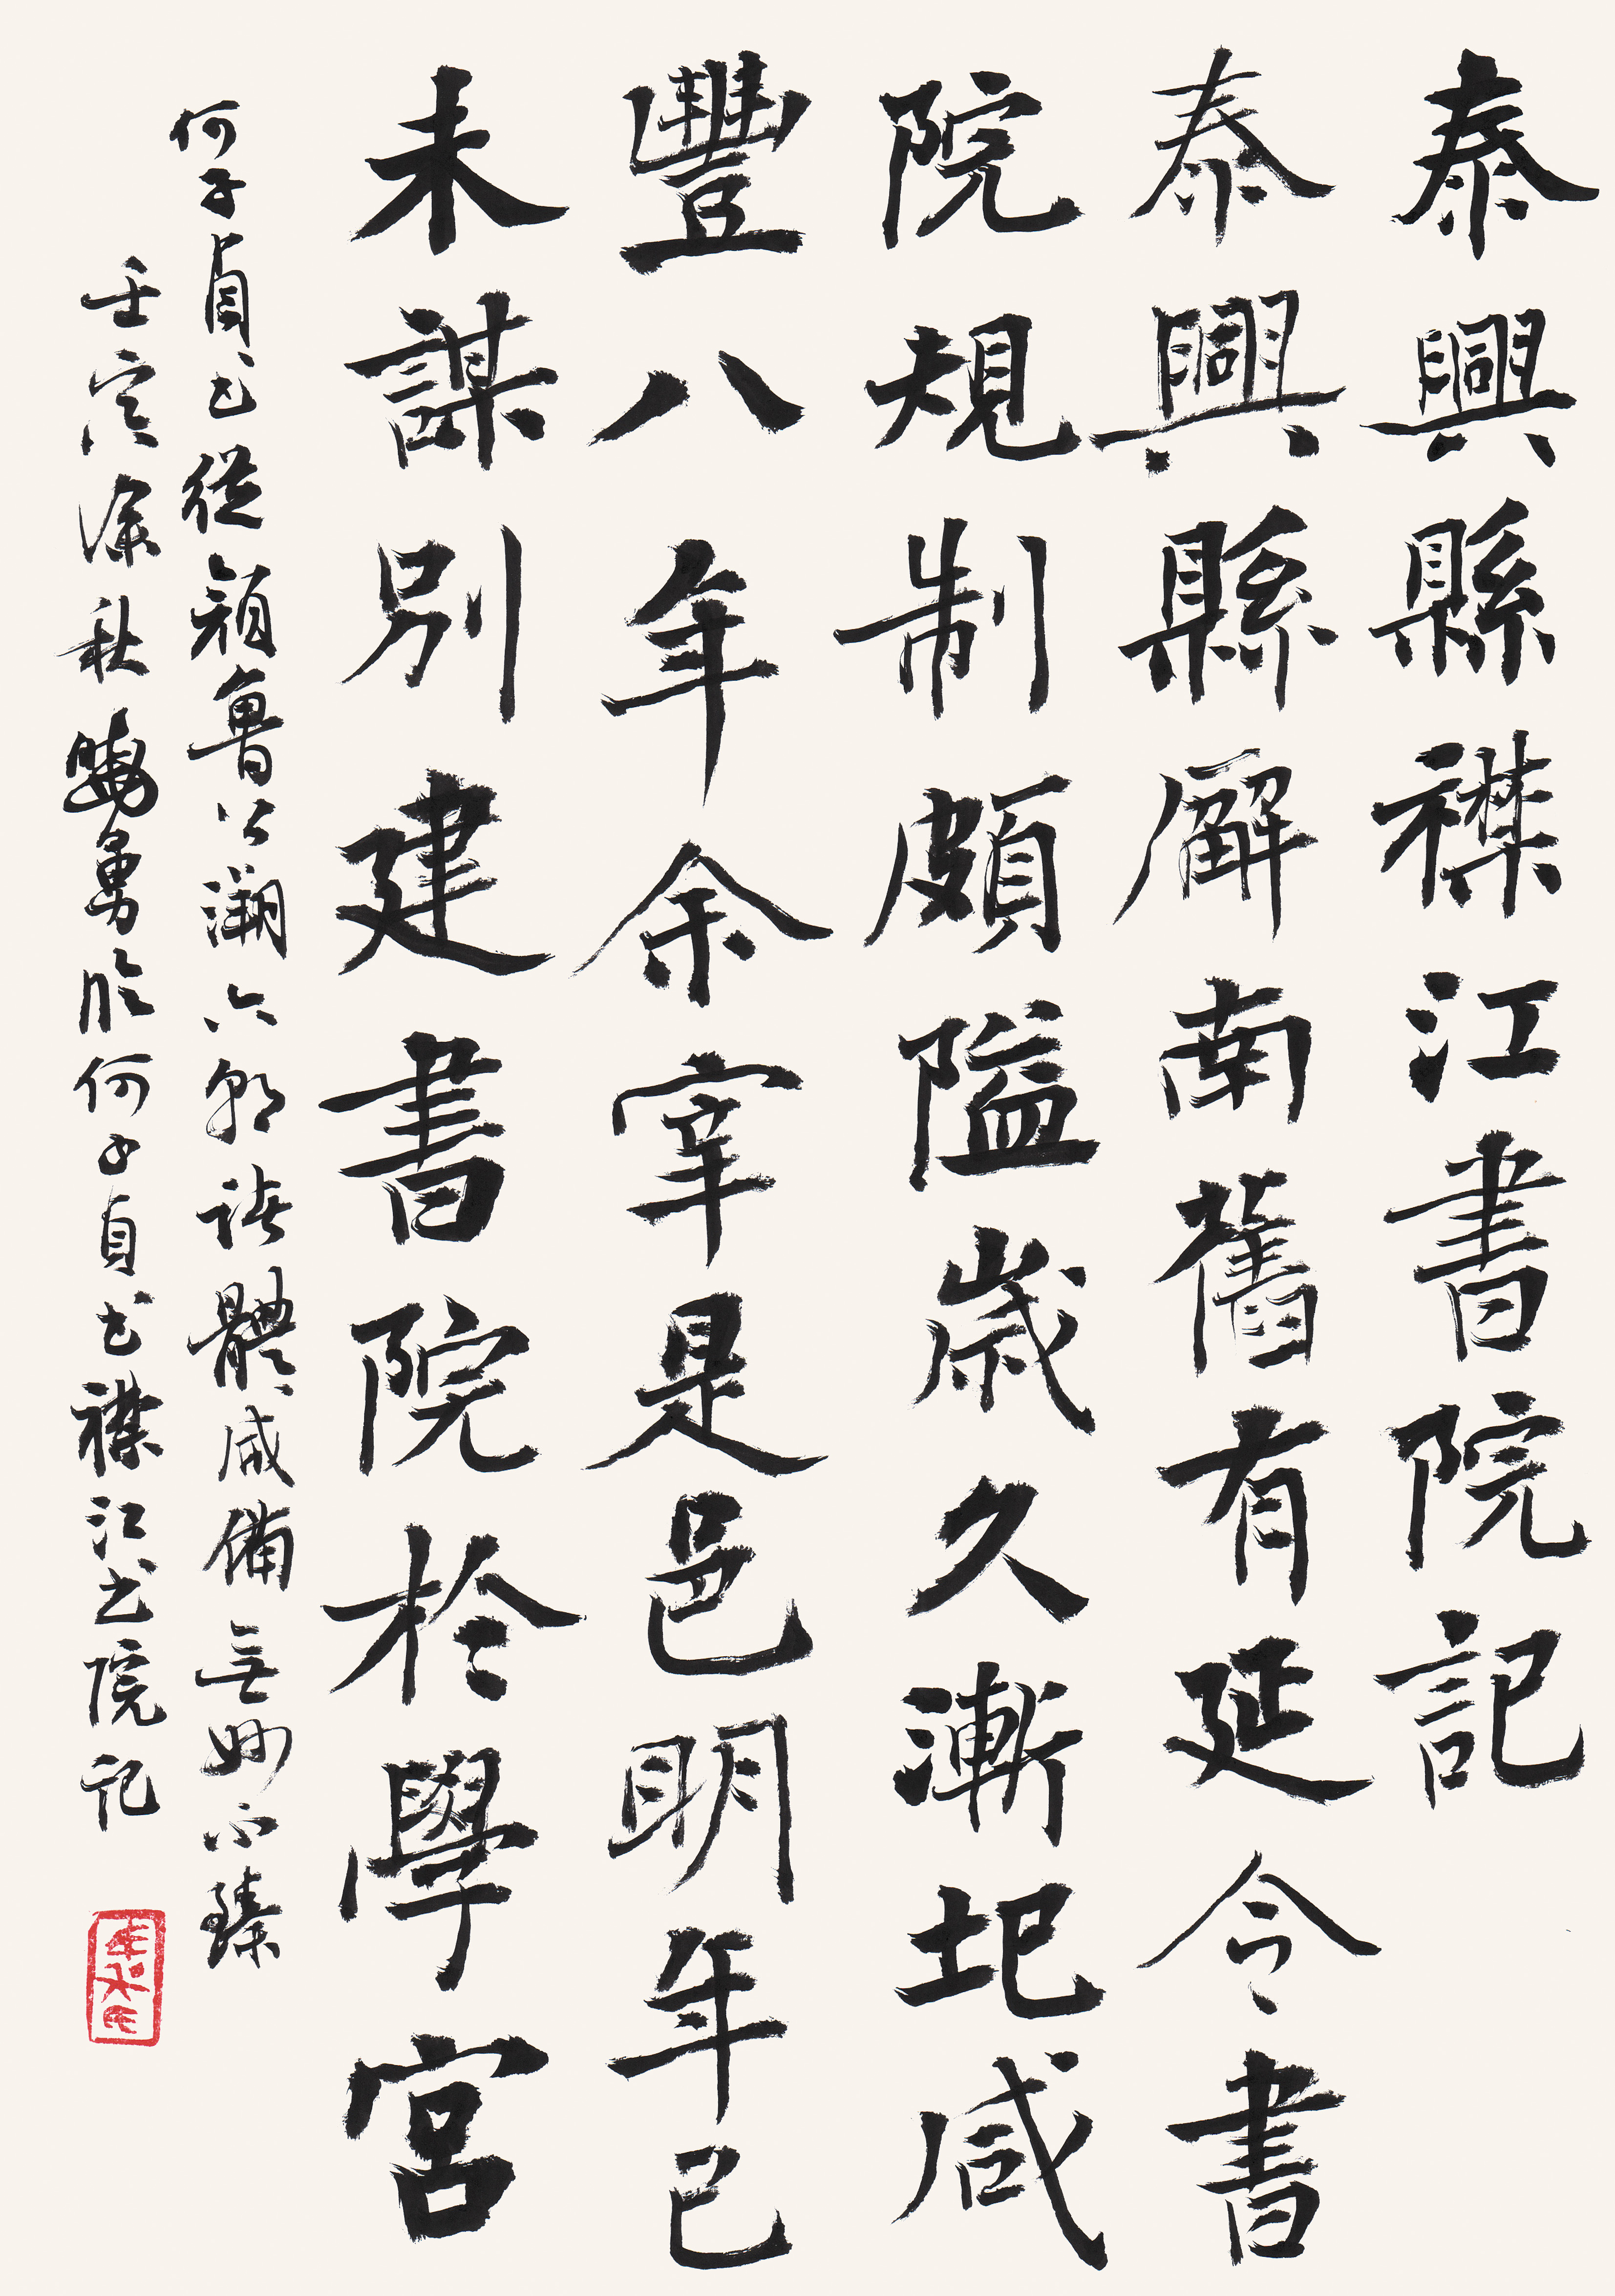 泰興縣襟江書院記
泰興縣廨南舊有延令書
院規制頗隘歲久漸圮咸
豐八年余宰是邑明年己
未謀別建書院於學宮
何子貞書從顏魯公溯六朝諸體咸備無妙不臻
壬寅深秋曉勇臨何子貞書襟江書院記